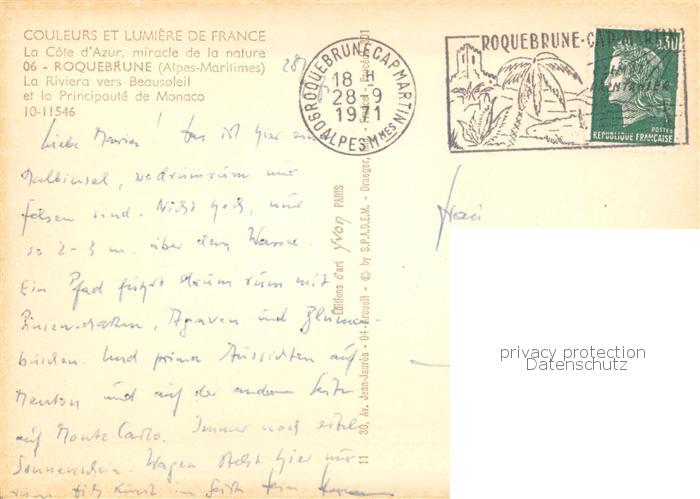 COULEURS ET LUMIÈRE DE FRANCE
La Côte d'Azur, miracle de la nature
06 - ROQUEBRUNE (Alpes-Maritimes)
La Riviera vers Beausoleil
et la Principauté de Monaco
10-11546
Liebe Maria! Das ist hier eine
Halbinsel, wo drumrum nur
Felsen sind. Nicht hoch, nur
so 2-3 m. über dem Wasser.
Ein Pfad führt drum rum mit
Agaven und Blumen-
büschen. Und prima Aussichten auf
Menton und auf der anderen Seite
auf Monte Carlo. Immer noch eitel
Sonnenschein. Wagen steht hier nur
ROQUEBRUNE CAP MARTIN
18 H
28-9
1971
06 ALPES MMES
ROQUEBRUNE-CAP-MARTIN
0,30
POSTES
REPUBLIQUE FRANÇAISE
Frau
Editions d'art Yvon PARIS
30, Av. Jean-Jaurès - 94-Arcueil - © by S.P.A.D.E.M. - Draeger,
11
privacy protection
Datenschutz